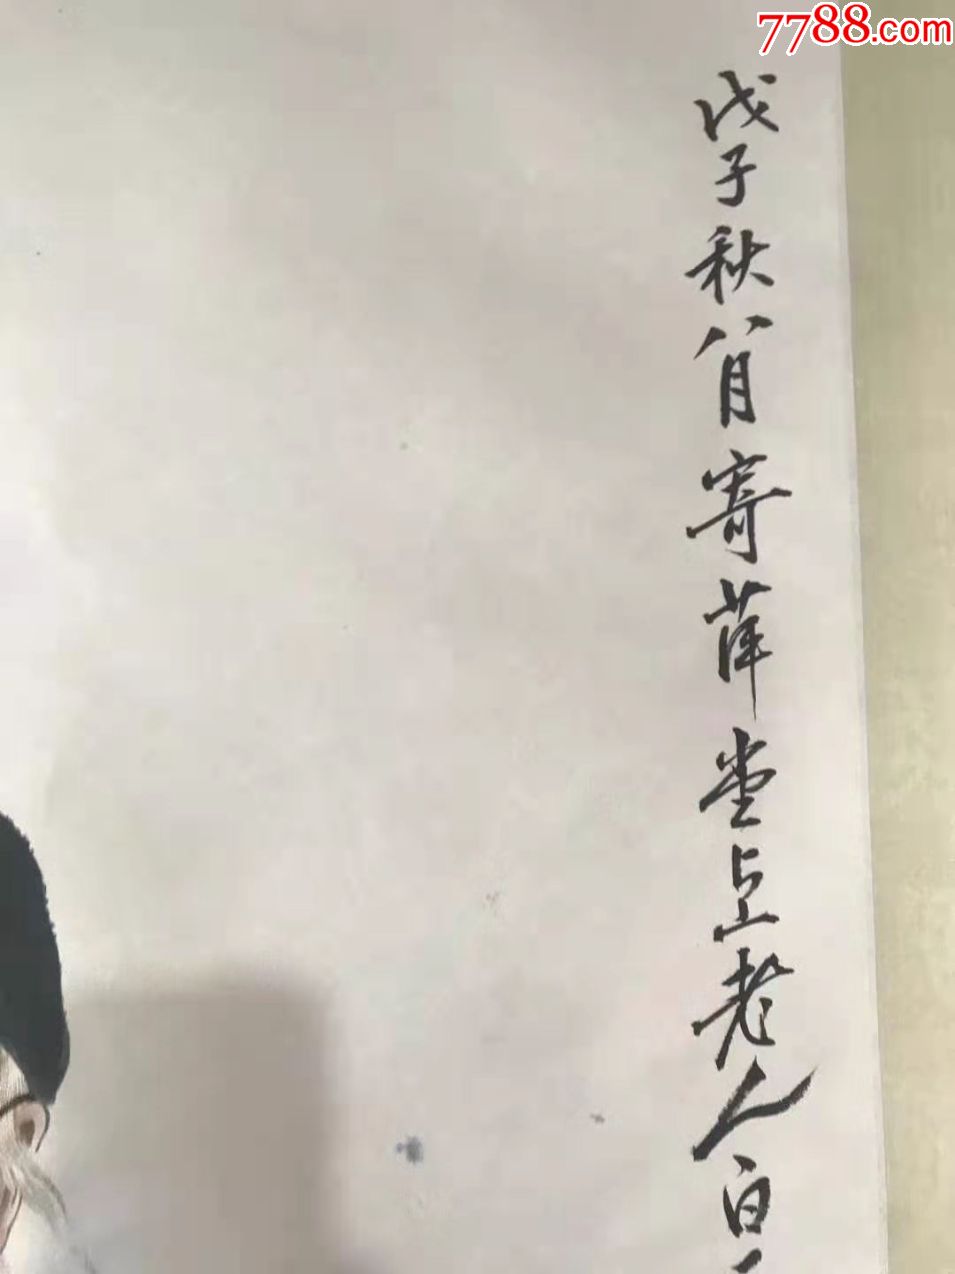 7788.com
戊子秋八月寄萍堂上老人白